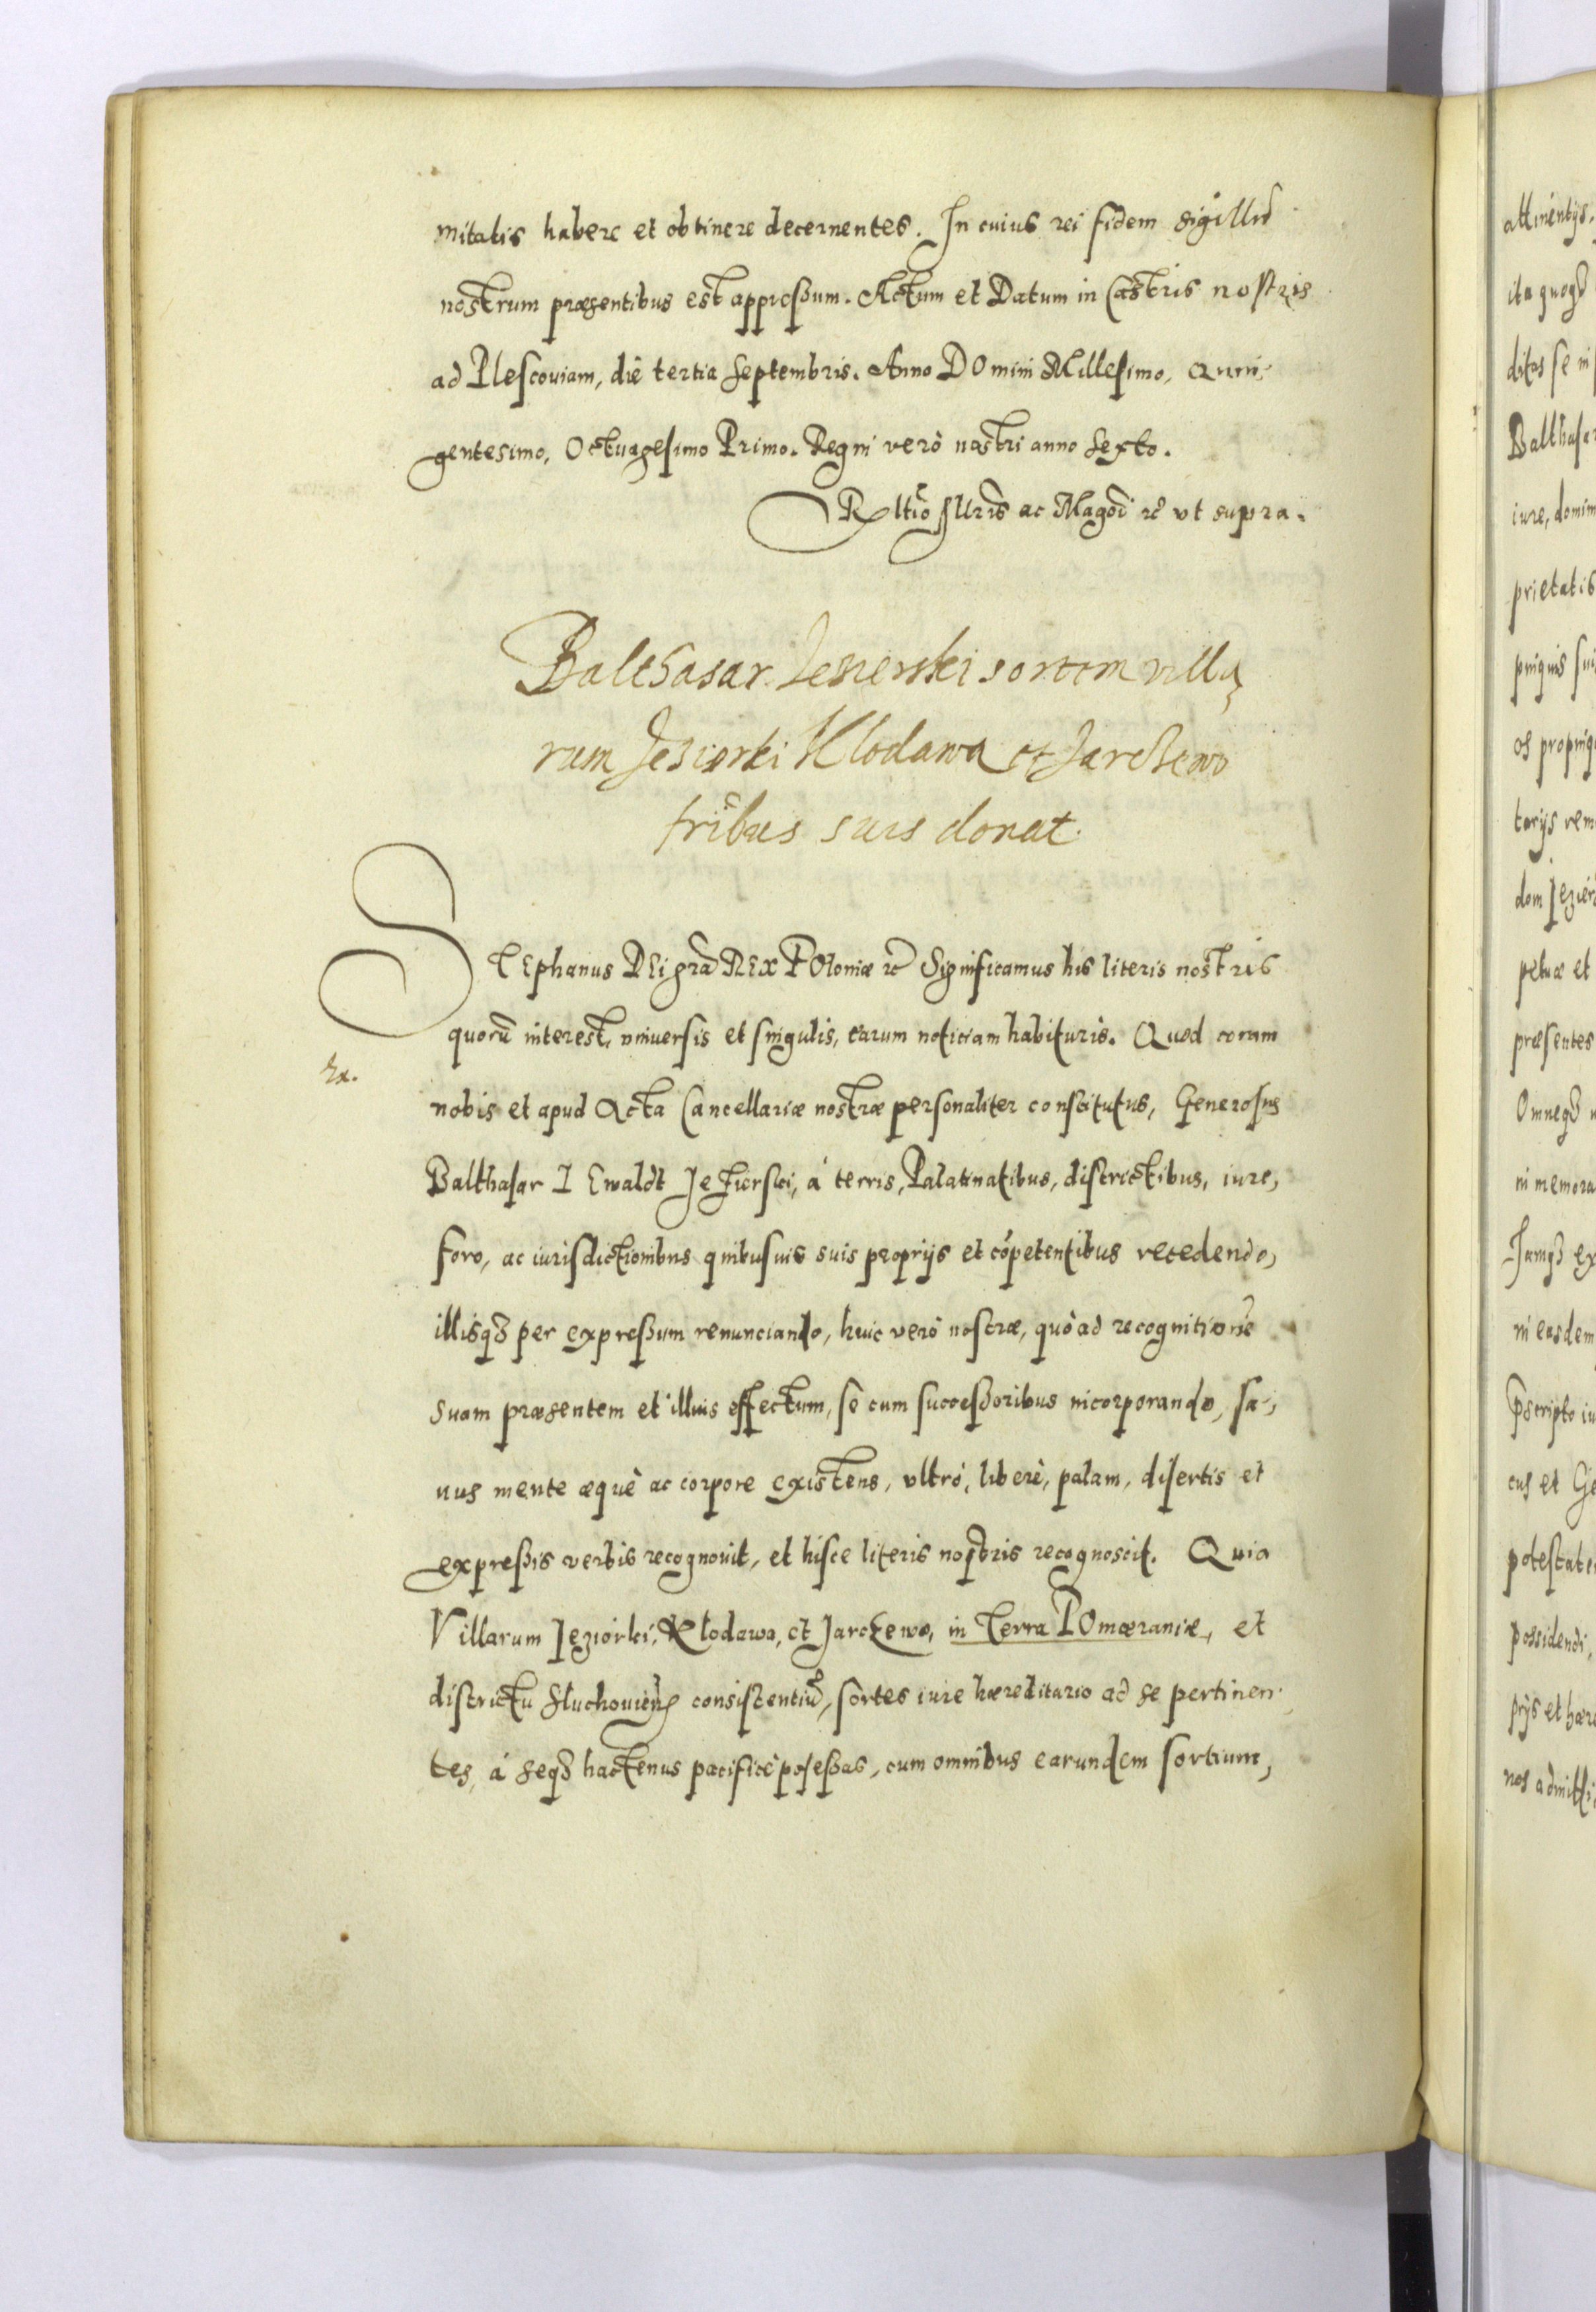 mitatis habere et obtinere decernentes. In cuius rei fidem sigillū
nostrum præsentibus est appressum. Actum et Datum in Castris nostris
ad Plescouiam, die tertia Septembris. Anno DOmini Millesimo, Quin-
gentesimo, Octuagesimo Primo. Regni verò nostri anno Sexto.
Rltio Illris ac Magci rc vt supra.
Balthasar Jezierski sortem villa,
rum Jeziorki Klodawa et Jarczewo
fribus suis donat.
STEphanus DEi gra REX POloniæ rc Significamus his literis nostris
quorū interest, vniuersis et singulis, earum noticiam habituris. Quod coram
Ex.
nobis et apud Acta Cancellariæ nostræ personaliter constitutus, Generosus
Balthasar I Ewaldt Jezierski, à terris, Palatinatibus, districtibus, iure,
foro, ac iurisdictionibus quibusuis suis proprijs et cōpetentibus recedendo,
illisq3 per expressum renunciando, huic verò nostræ, quò ad recognitionē
suam præsentem et illius effectum, se cum successoribus incorporando, sa-,
nus mente æquè ac corpore existens, vltrò, liberè, palam, disertis et
expressis verbis recognouit, et hisce literis nostris recognoscit. Quia
Villarum Jeziorki, Klodawa, et Jarczewo, in Terra POmæraniæ, et
districtu Sluchouien consistentiū, sortes iure hæreditario ad se pertinen-
tes, à seq3 hactenus pacificè possessas, cum omnibus earundem sortium,
attinentijs.
ita quoq3
Balthasar
iure, domin
prietatis
pinquis sui
os propinq
tarijs rem
dom Jezier
petuæ et
præsentes
Omneq3
in memora
Iamq3 ex
in easdem
cus et Ge
potestate
possidendi,
prijs et hære
nos admitti